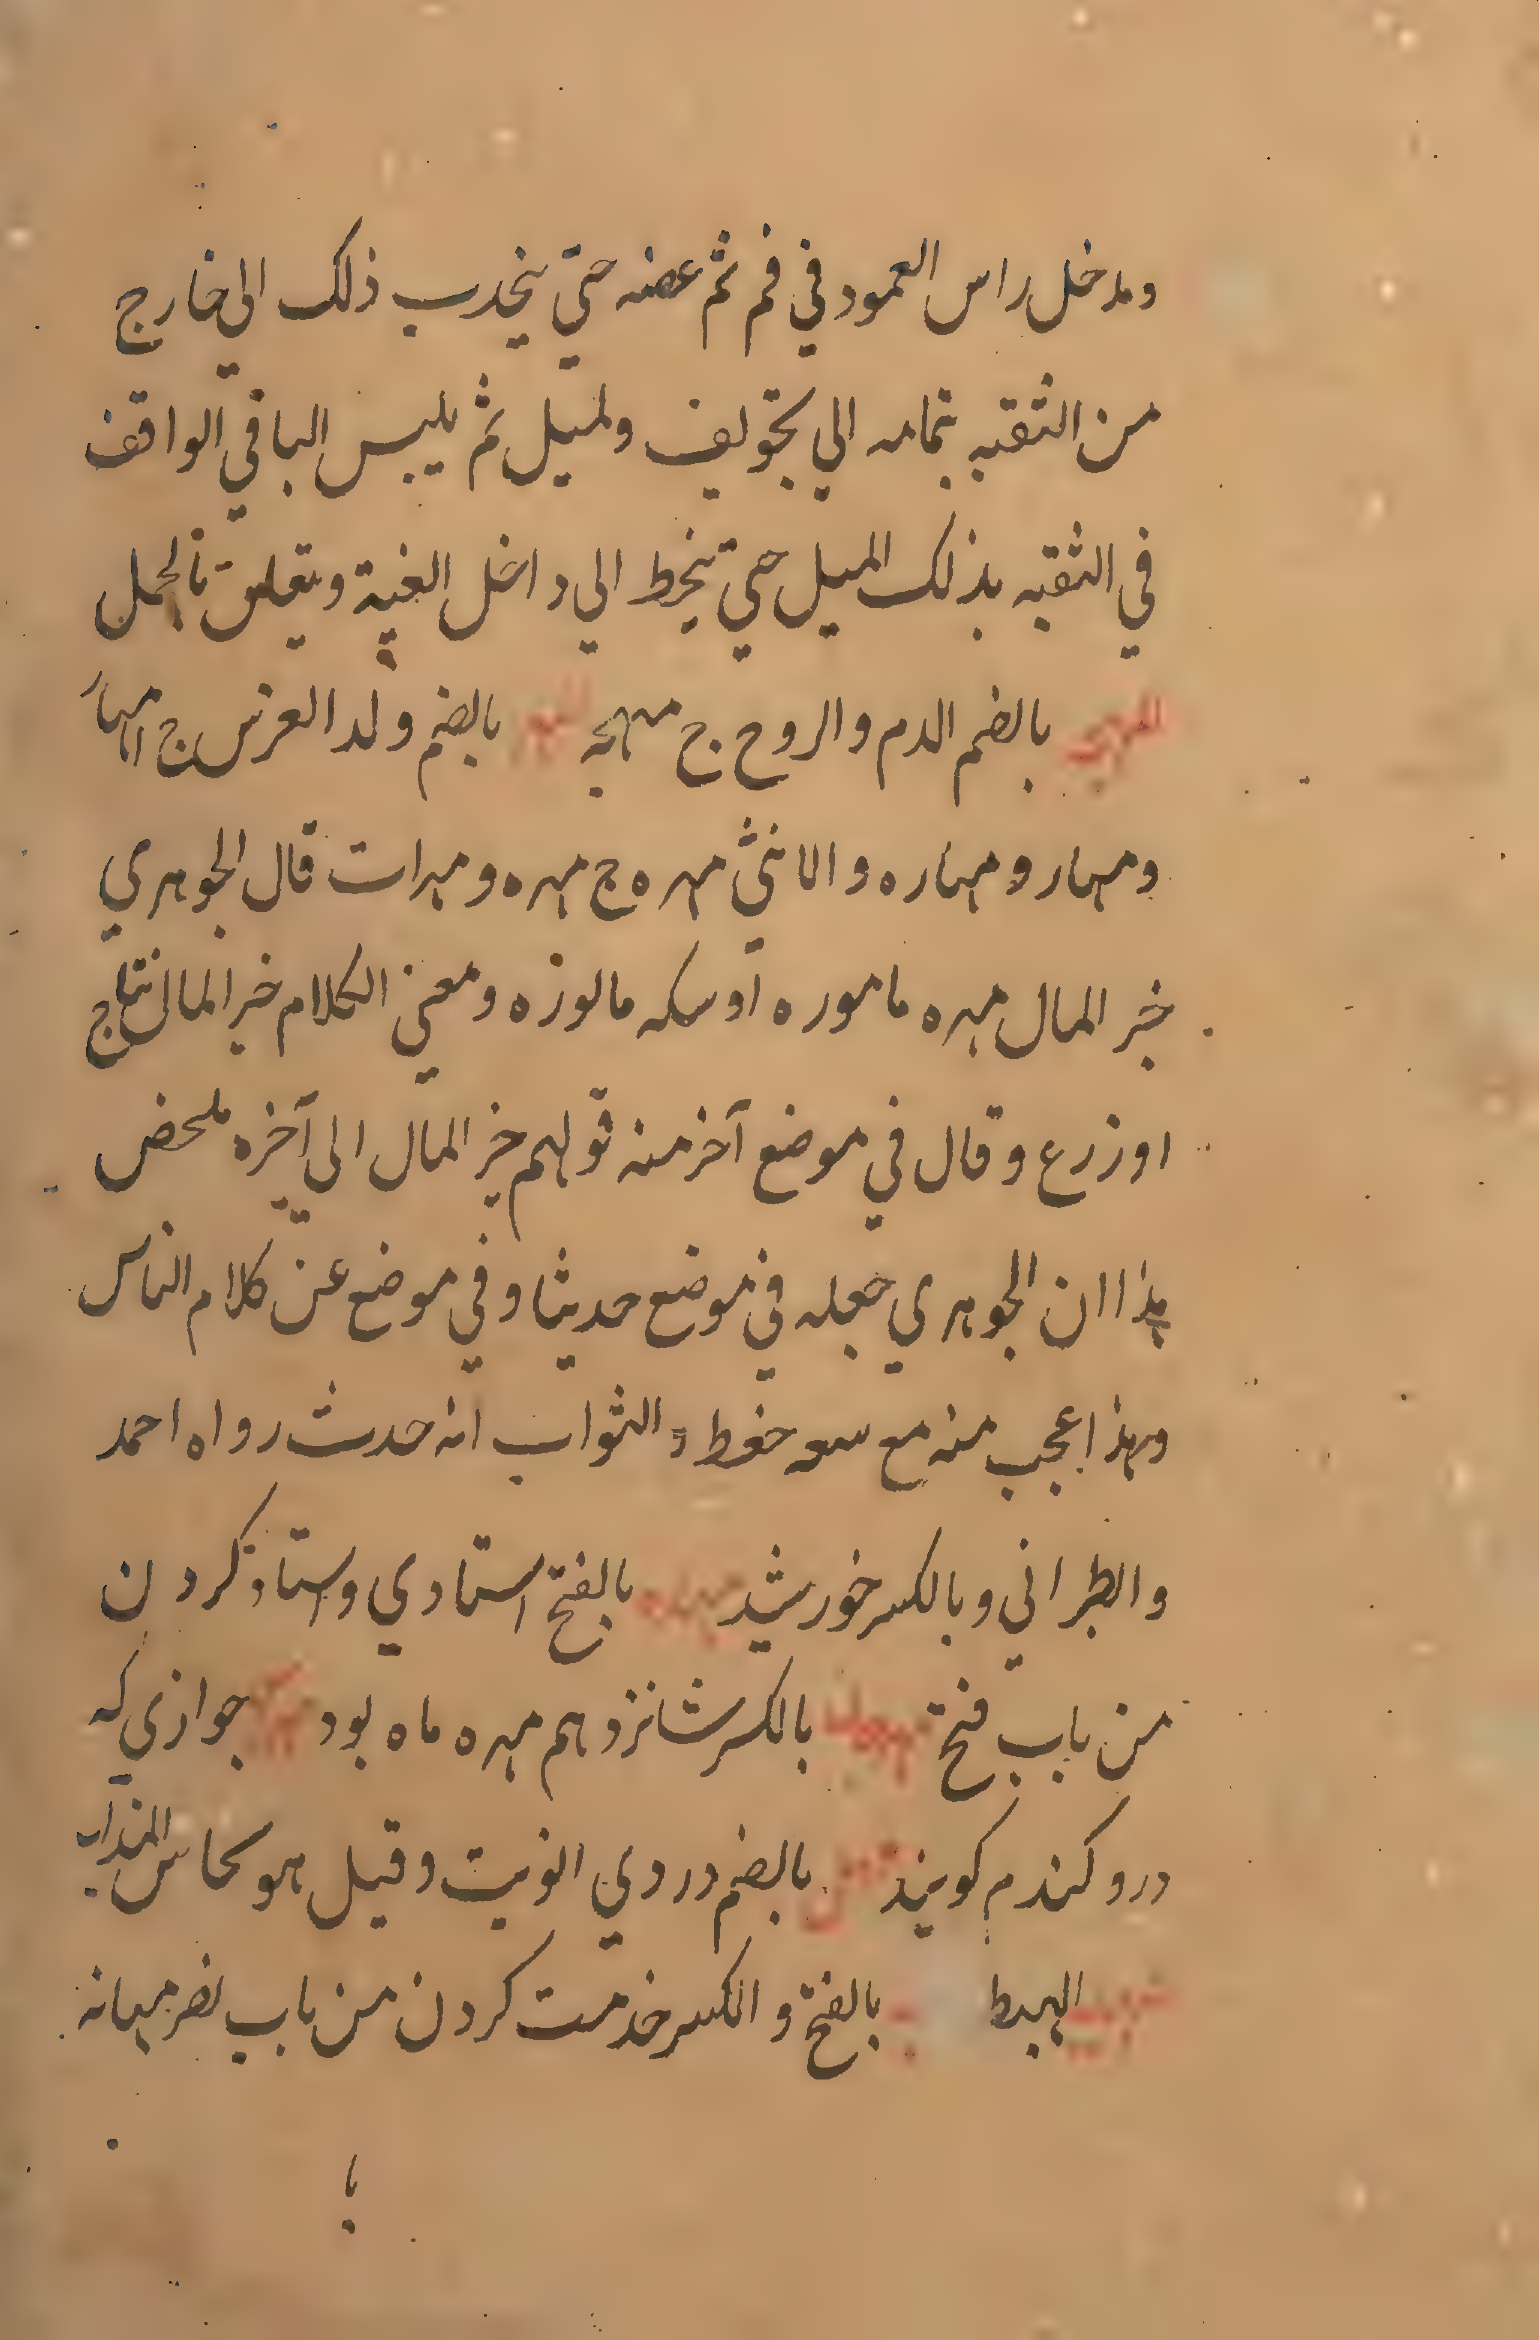 ومدخل راس العمود في فم ثم عضه حتي ينجدب ذلك الي خارج
من الثقبه بتمامه الي تجويف ولميل ثم يلبس الباقي الواقف
في الثقبه بذلك الميل حتي ينخرط الي داخل الغبية ويتعلق بالحمل
المهجه بالضم الدم والروح ج مهجه المهر بالضم ولد الفرس ج امهار
ومهار ومهاره والانثي مهره ج مهره ومهرات قال الجوهري
خير المال مهره ماموره او سكه مابوره ومعني الكلام خير المال نتاج
او زرع وقال في موضع آخر منه قولهم خير المال الي آخره ملخص
هذا ان الجوهري جعله في موضع حديثا وفي موضع عن كلام الناس
وهذا اعجب منه مع سعه حفظه والثواب انه حدث رواه احمد
والطبراني وبالكسر خورشيد بالفتح استادي واستاد كردن
من باب فتح بالكسر شانزدهم مهره ماه بود جوازي كه
درو كندم كويند بالضم دردي الزيت وقيل هو النحاس المذاب
الهبط بالفتح والكسر خدمت كردن من باب نصر ميانه
با